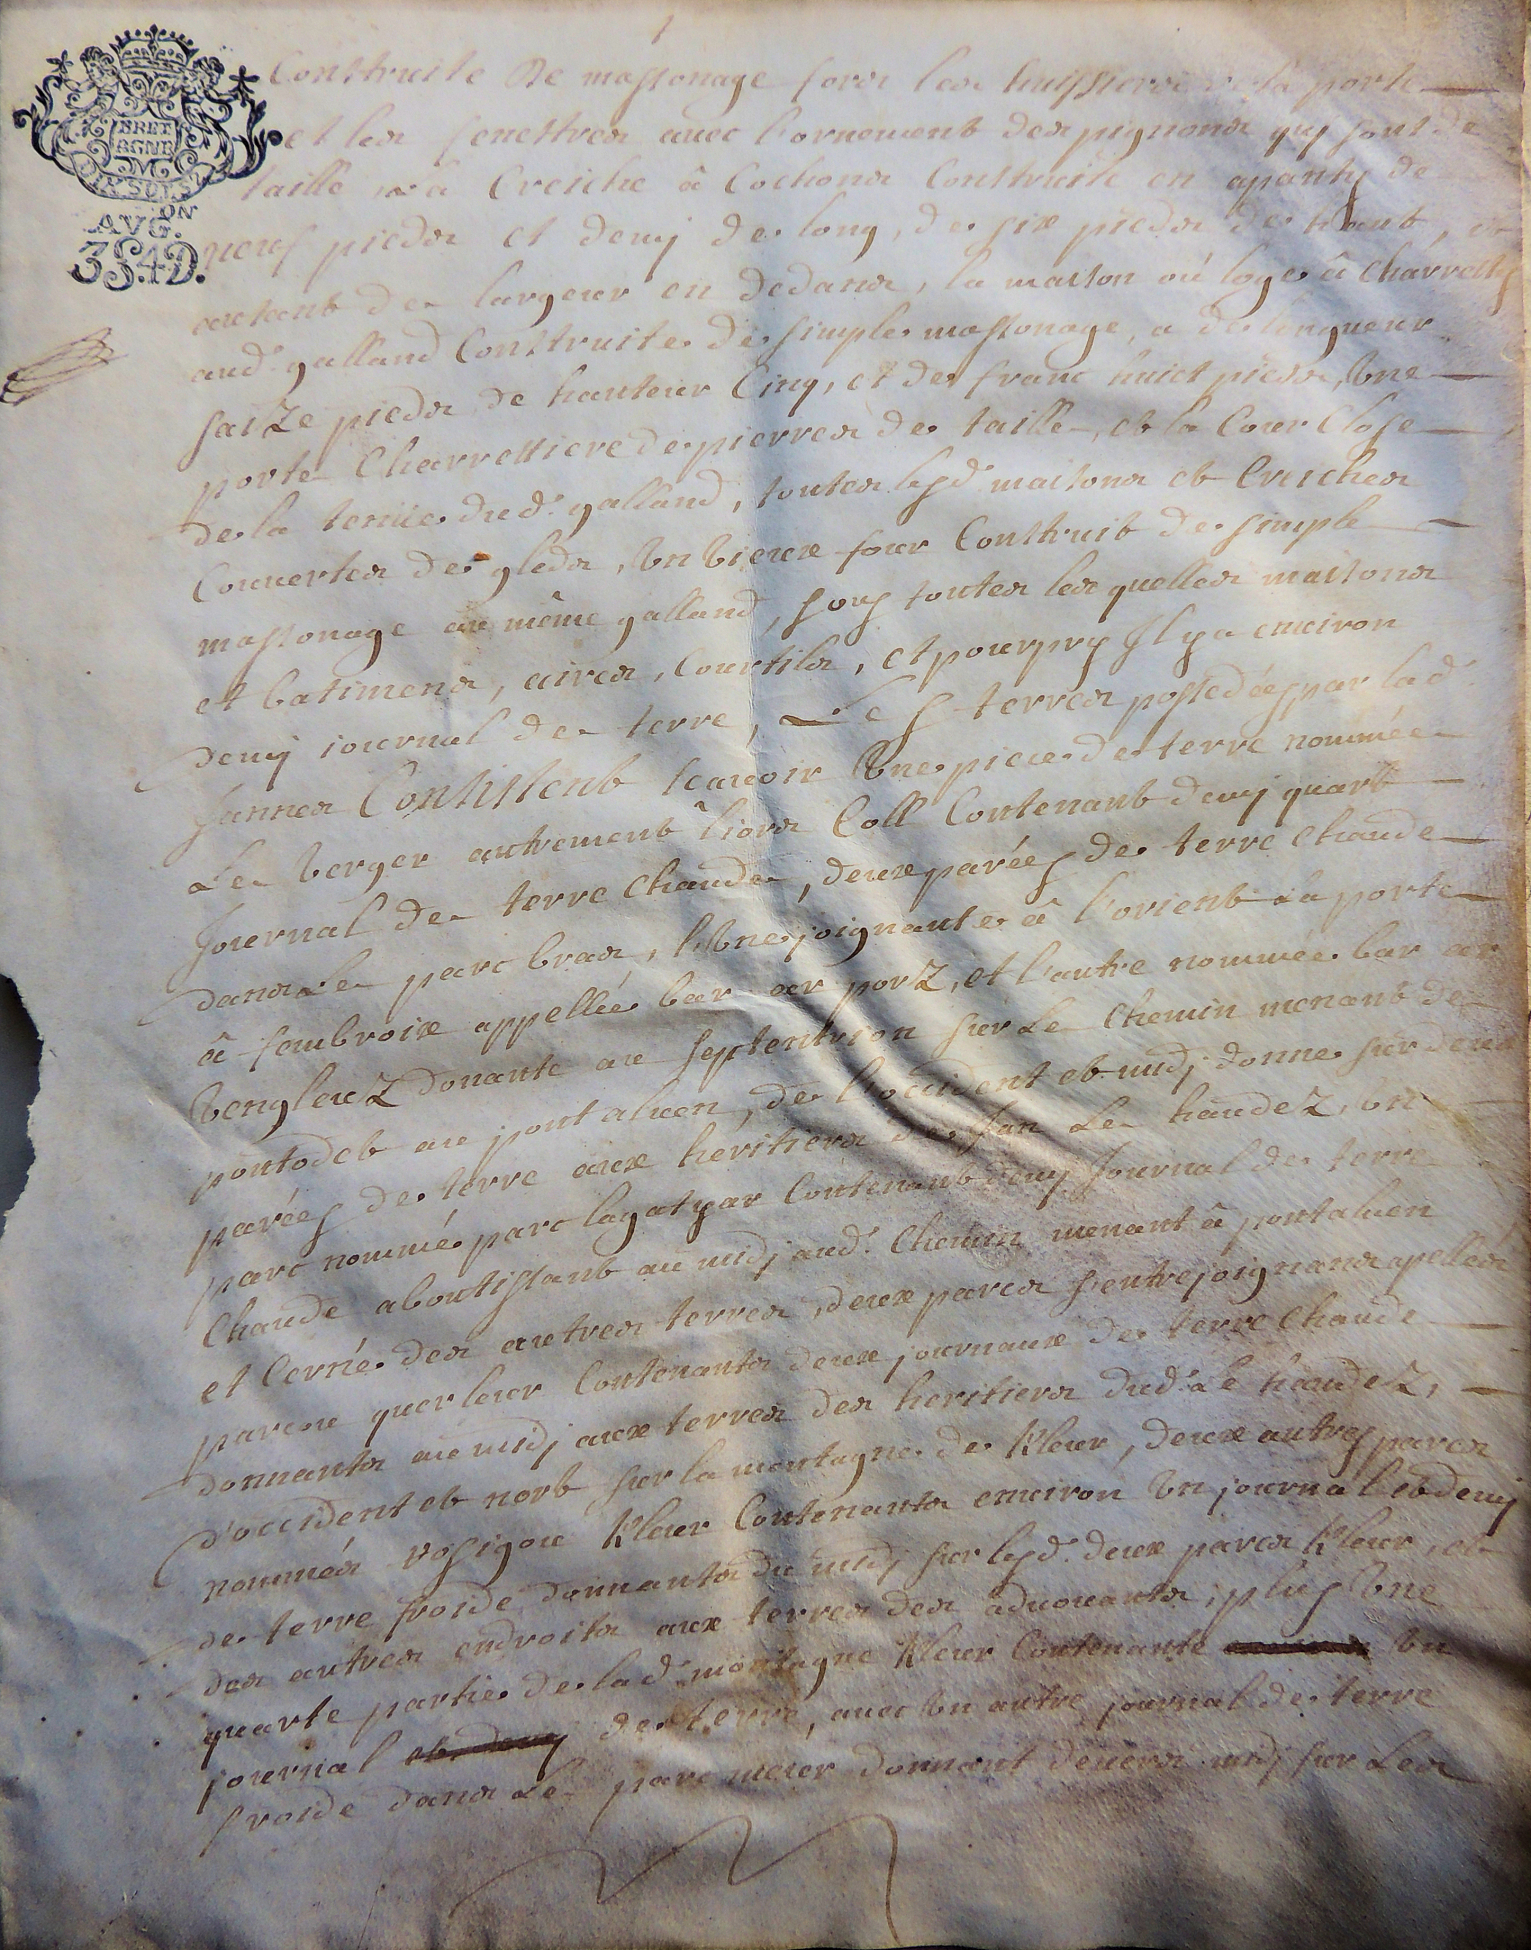 BRET
AGNE
DIX SOLS
AVG.ON
3S.4D.
Construite de massonage fors les huissieres de la porte
et les fenestres auec l'ornement des pignons quj sont de
taille, la Creiche â Cochons Construite en apanty de
neuf pieds et demj de long, de six pieds de haut, et
autant de largeur en dedans, la maison ou loge â charrettes
aud. galland Construite de simple massonage, a de longueur
saize pieds de hauteur Cinq, et de franc huict pieds, Vne
porte Charrettiere de pierres de taille, et la Cour Close
de la tenüe dud. galland, toutes lesd. maisons et Creiches
Couuertes de gleds, Vn Vieux four Construit de simple
massonage au même galland, sous toutes les quelles maisons
et batimens, aires, Courtils, et pourprys Il y a enuiron
demj journal de terre, Les terres possedées par lad.
Jannes Consistent scauoir Vne piece de terre nommée
Le Verger autrement liors Coll Contenant demj quart
Journal de terre chaude, deux parées de terre chaude
dans Le parc bras, l'Vne joignante â l'orient La porte
â fembroix appellée bar ar porz, et l'autre nommée bar ar
Vengleuz donante au septentrion sur Le Chemin menant de
pontodet au pont aluen, de l'occident et midj donne sur deux
parées de terre aux héritiers de Jan Le haudez, Vn
parc nommé parc lagatyar Contenant demj Journal de terre
Chaude aboutissant au midj aud. Chemin menant â pontaluen
et Cerné des autres terres, deux parcs s'entrejoignans apellés
parcou querleur Contenants deux journaux de terre Chaude
donnants au midj aux terres des heritiers dud. Le haudez,
d'occident et nort sur la montagne de Kleur, deux autres parcs
nommés rosigou Kleur Contenants enuiron Vn journal et demj
de terre froide donnants du midj sur lesd. deux parcs Kleur, et
des autres endroits aux terres des aduouants, plus Vne
quarte partie de lad. montagne Kleur Contenante Vn
journal et demj de terre, auec Vn autre journal de terre
froide dans Le parc meur donnant deuers midj sur Les